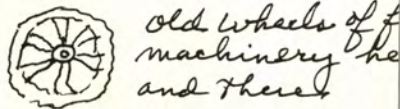 old wheels of
machinery
and there